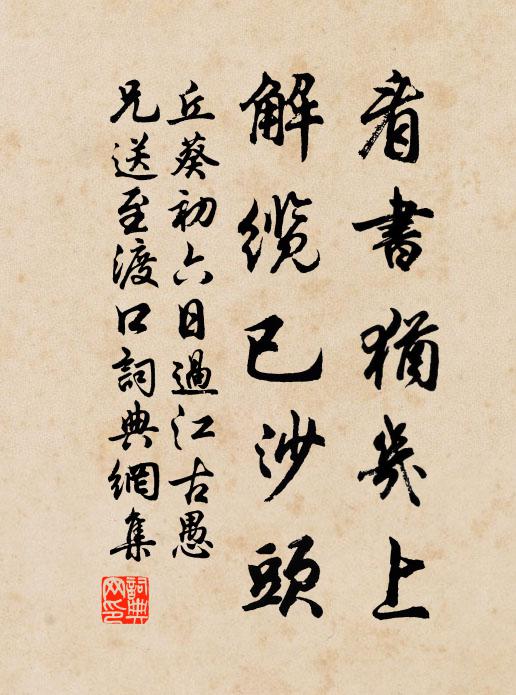 看書猶几上
解纜已沙頭
丘葵初六日過江古愚
兄送至渡口詞典網集
詞典網印